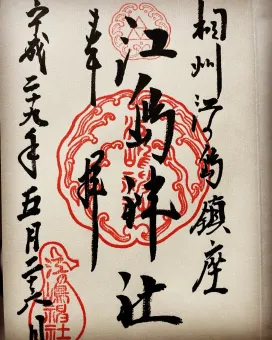 相州江の島鎮座
奉拝
江島神社
平成二十九年五月二十八日
江の島神社